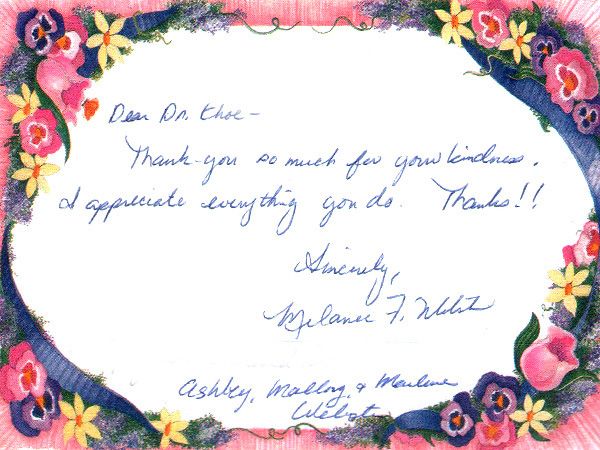 Dear Dr. Khoe -
Thank-you so much for your kindness.
I appreciate everything you do. Thanks!!
Sincerely,
Melanie F. Welst
Ashley, Mallory, & Marlene
Welst